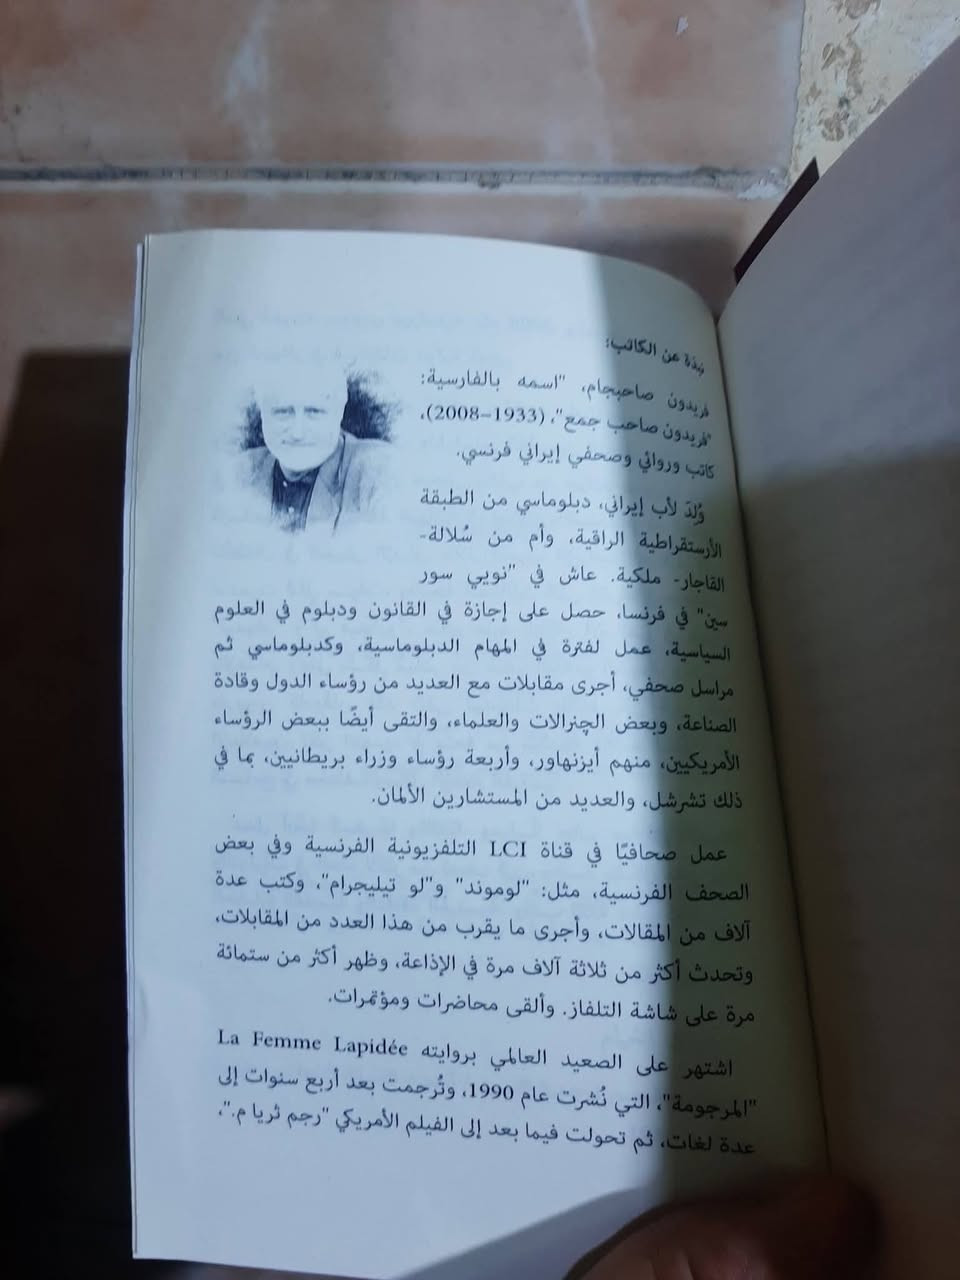 نبذة عن الكاتب:
فريدون صاحبجام، "اسمه بالفارسية:
"فريدون صاحب جمع"، (1933–2008)،
كاتب وروائي وصحفي إيراني فرنسي.
وُلِدَ لأب إيراني، دبلوماسي من الطبقة
الأرستقراطية الراقية، وأم من سُلالة-
القاجار- ملكية. عاش في "نويي سور
سين" في فرنسا، حصل على إجازة في القانون ودبلوم في العلوم
السياسية، عمل لفترة في المهام الدبلوماسية، وكدبلوماسي ثم
مراسل صحفي، أجرى مقابلات مع العديد من رؤساء الدول وقادة
الصناعة، وبعض الچنرالات والعلماء، والتقى أيضًا ببعض الرؤساء
الأمريكيين، منهم أيزنهاور، وأربعة رؤساء وزراء بريطانيين، بما في
ذلك تشرشل، والعديد من المستشارين الألمان.
عمل صحافيًا في قناة LCI التلفزيونية الفرنسية وفي بعض
الصحف الفرنسية، مثل: "لوموند" و"لو تيليجرام"، وكتب عدة
آلاف من المقالات، وأجرى ما يقرب من هذا العدد من المقابلات،
وتحدث أكثر من ثلاثة آلاف مرة في الإذاعة، وظهر أكثر من ستمائة
مرة على شاشة التلفاز. وألقى محاضرات ومؤتمرات.
اشتهر على الصعيد العالمي بروايته La Femme Lapidée
"المرجومة"، التي نُشرت عام 1990، وتُرجمت بعد أربع سنوات إلى
عدة لغات، ثم تحولت فيما بعد إلى الفيلم الأمريكي "رجم ثريا م."،